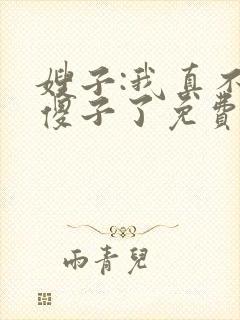 嫂子:我真不
傻子了免费
雨青兒